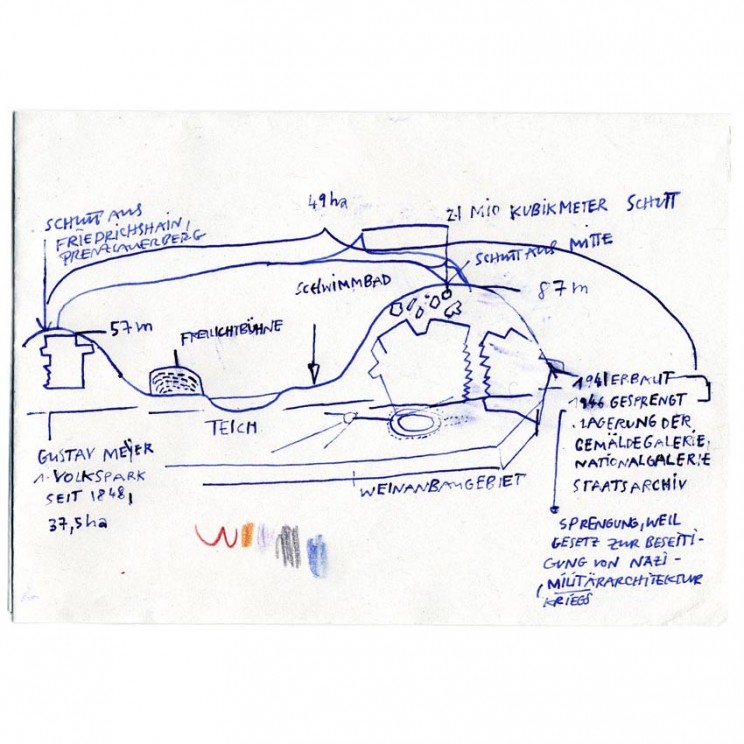 49 ha
SCHUTT AUS
FRIEDRICHSHAIN,
PRENZLAUERBERG
2.1 MIO KUBIKMETER SCHUTT
SCHUTT AUS MITTE
SCHWIMMBAD
87 m
57 m
FREILICHTBÜHNE
TEICH
1941 ERBAUT
1946 GESPRENGT
. LAGERUNG DER
GEMÄLDEGALERIE,
NATIONALGALERIE
STAATSARCHIV
GUSTAV MEYER
1. VOLKSPARK
SEIT 1848,
37,5 ha
WEINANBAUGEBIET
SPRENGUNG, WEIL
GESETZ ZUR BESEITI-
GUNG VON NAZI-
MILITÄRARCHITEKTUR
KRIEGS